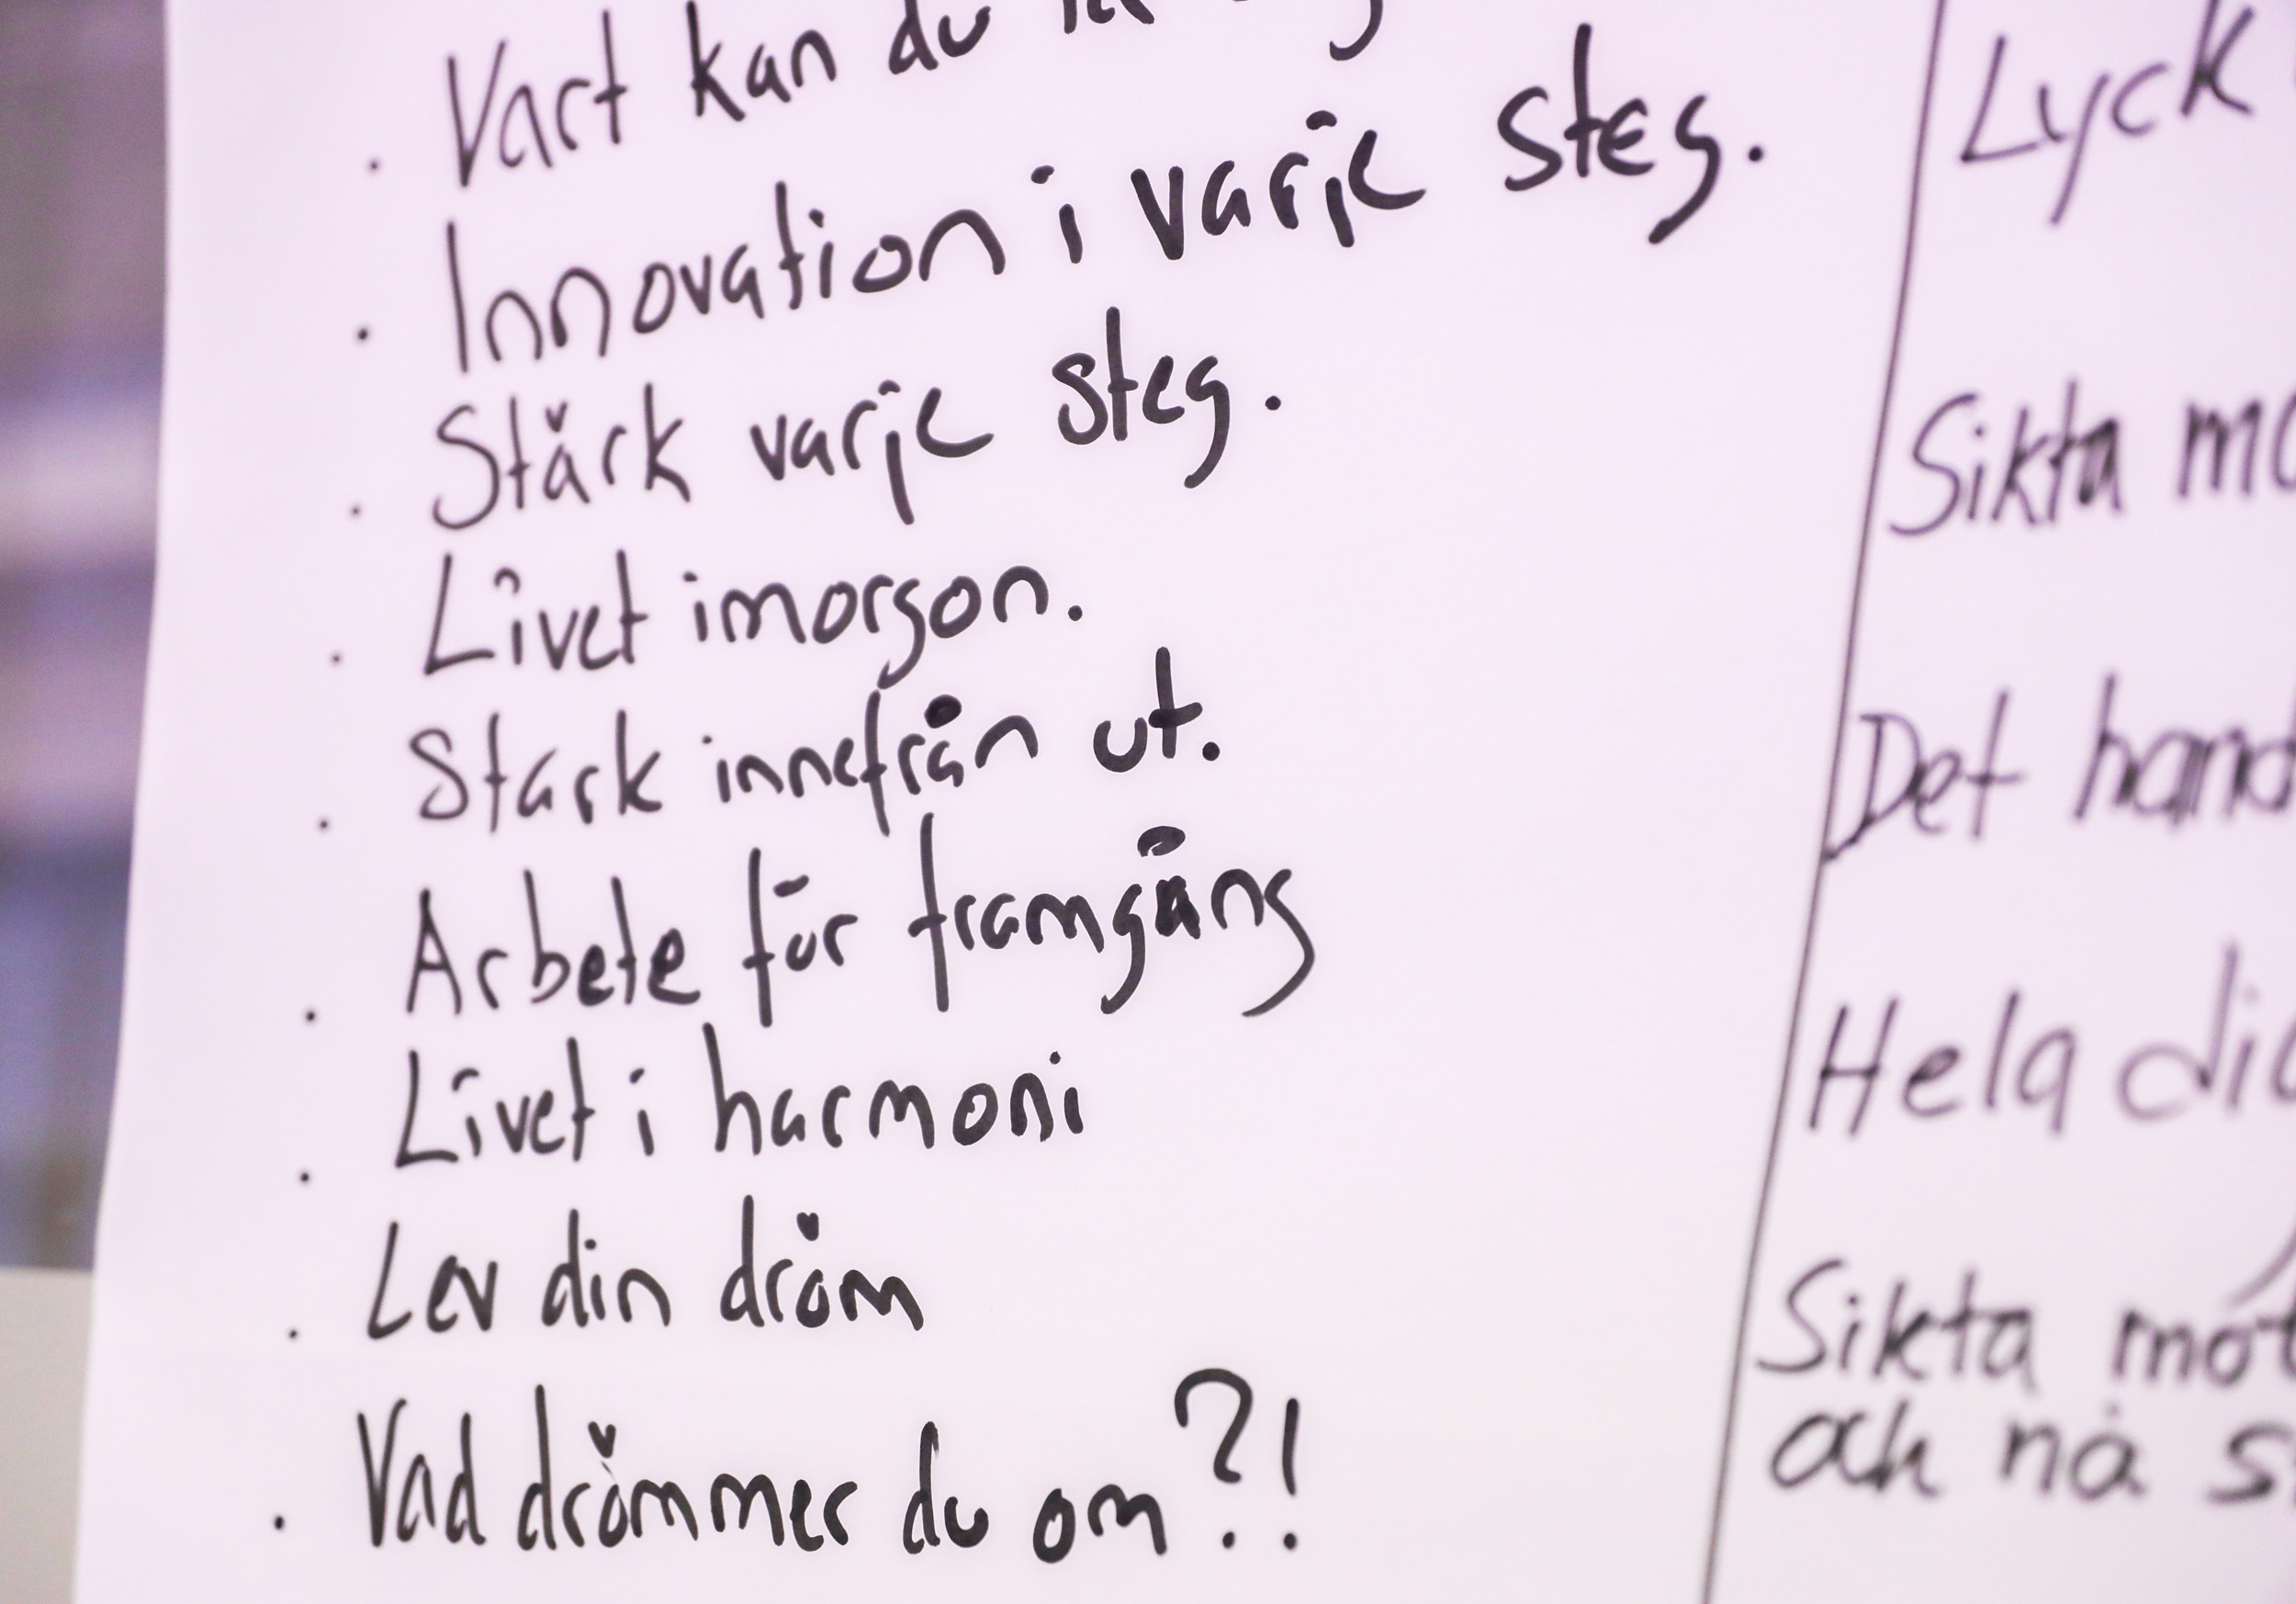 . Vart kan du
. Innovation i varje steg.
. Stärk varje steg.
. Livet imorgon.
. Stark innefrån ut.
. Arbete för framgång
. Livet i harmoni
. Lev din dröm
. Vad drömmer du om?!
Lyck
Sikta mo
Det hand
Hela di
Sikta mot
och nå s